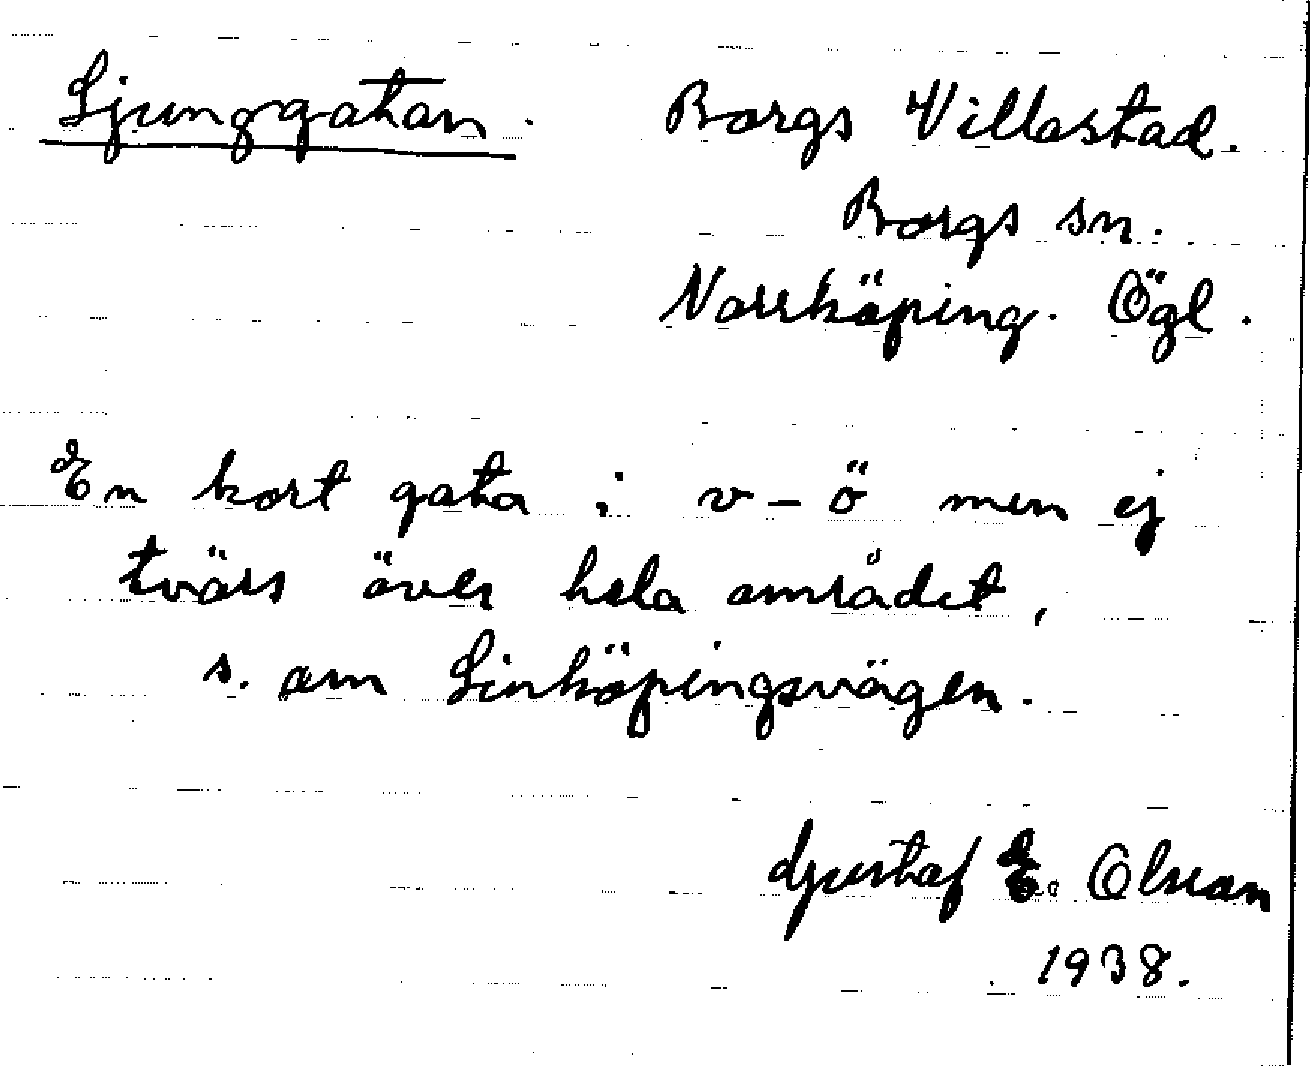 Ljunggatan. Borgs Villastad.
Borgs sn.
Norrköping. Ögl.
En kort gata i v-ö men ej
tvärs över hela området,
s. om Linköpingsvägen.
Gustaf E. Olsson
1938.